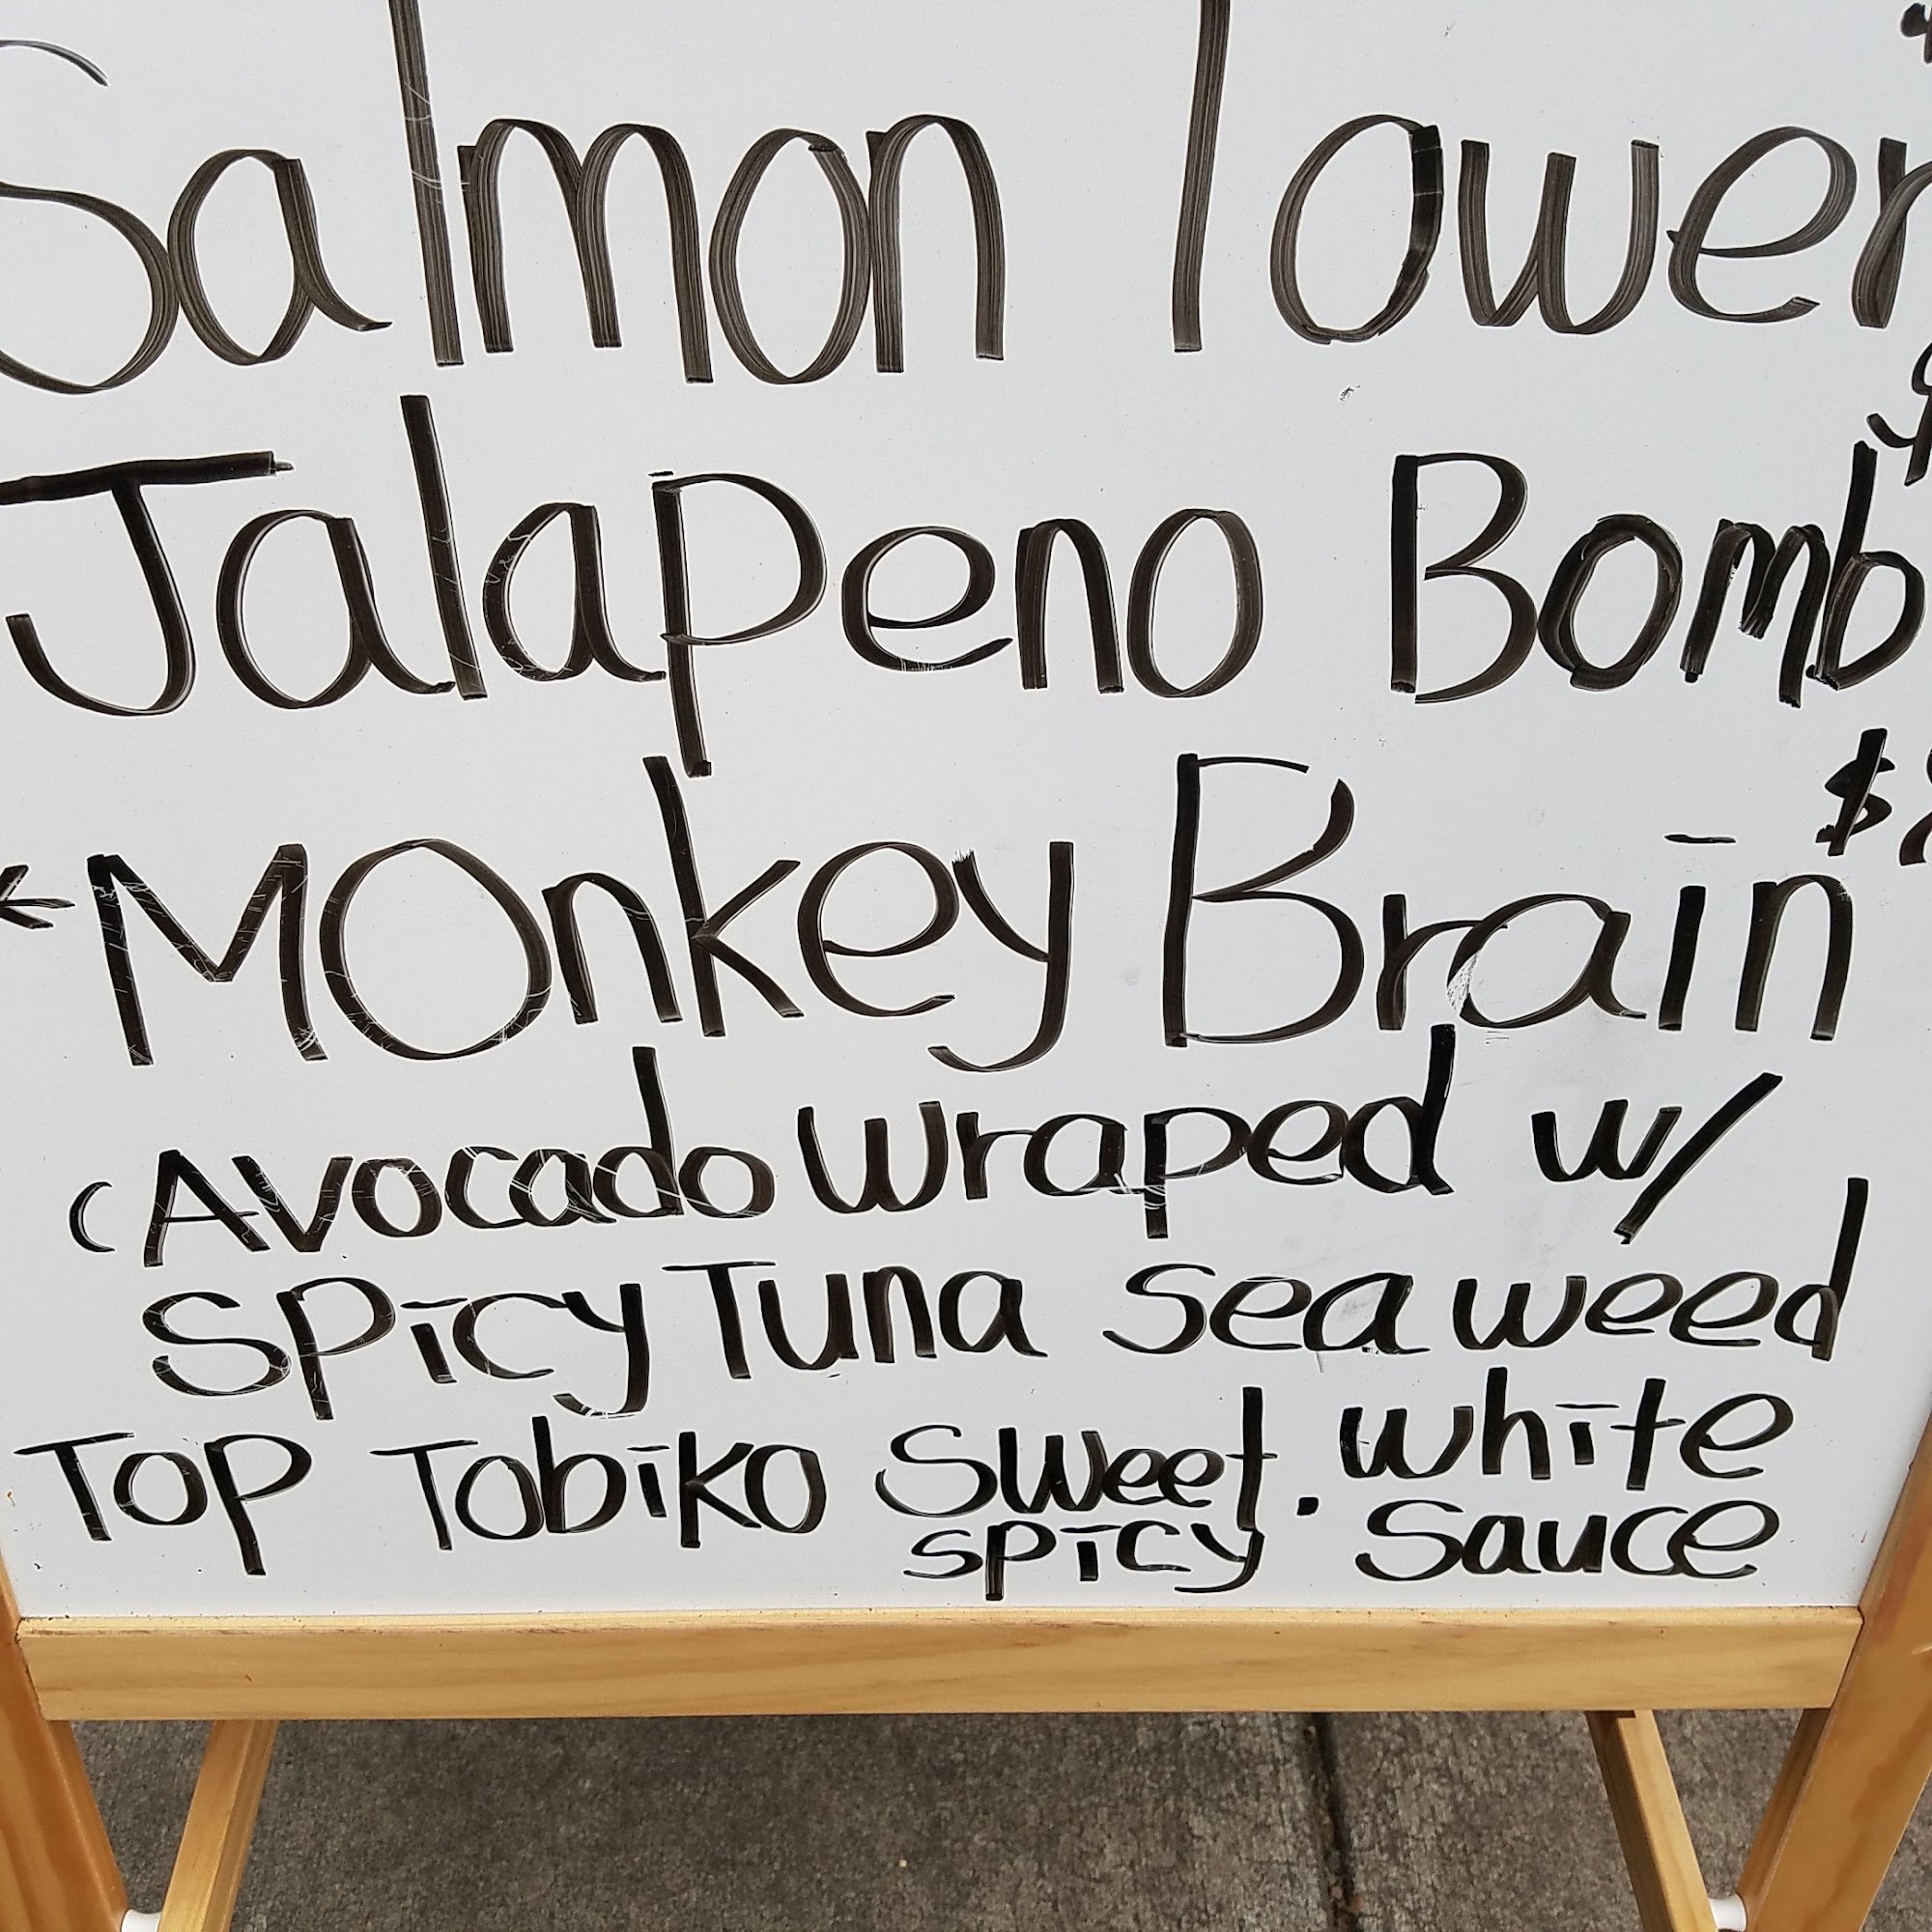 Salmon Tower
Jalapeno Bomb
*Monkey Brain $
(Avocado wraped w/
Spicy Tuna Seaweed
Top Tobiko Sweet. white
spicy sauce